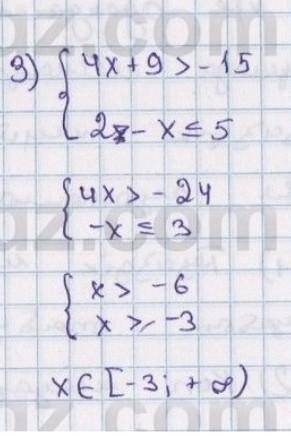 3) { 4x + 9 > -15
2 - x ≤ 5
{ 4x > -24
-x ≤ 3
{ x > -6
x ≥ -3
x ∈ [-3; +∞)